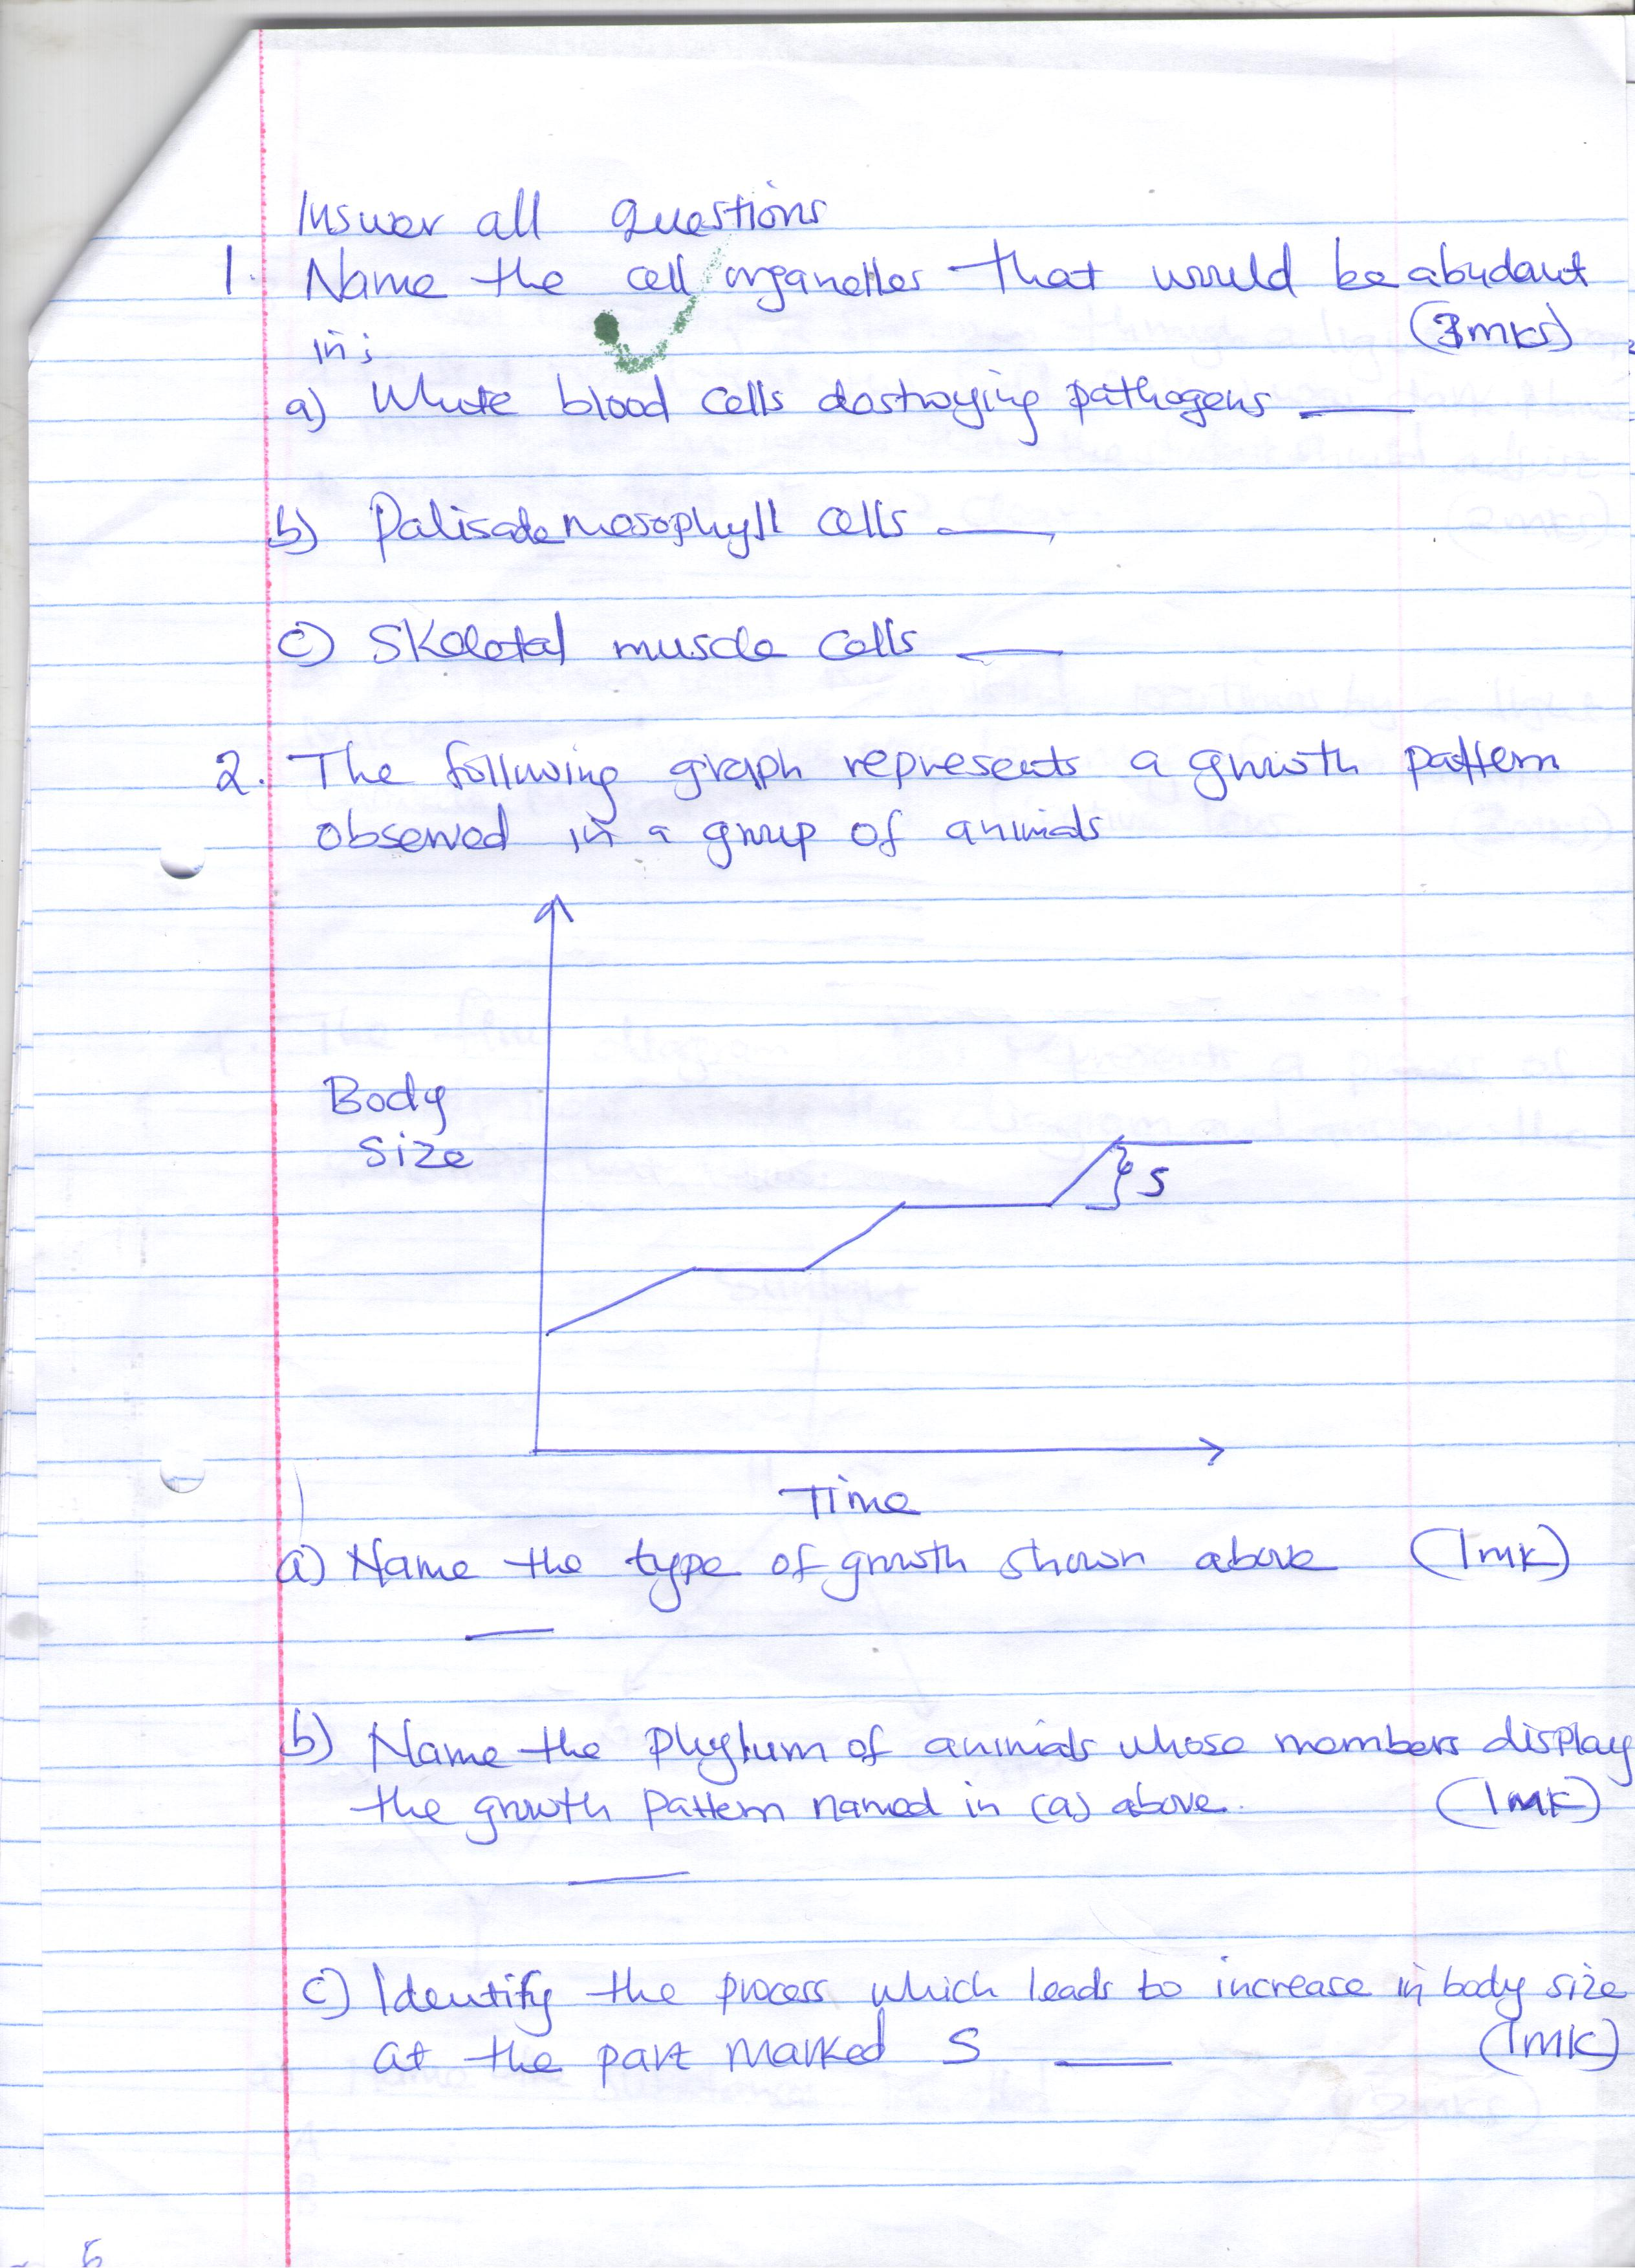 Inswer all questions
1. Name the cell organelles that would be abudant
in; (3mks)
a) White blood cells dostroying pathogens ___
b) Palisade mesophyll cells ___
c) Skeletal muscle cells ___
2. The following graph represents a growth pattern
observed in a group of animals
Body
Size
S
Time
a) Name the type of growth shown above (1mk)
b) Name the Phylum of animals whose members display
the growth pattern named in (a) above. (1mk)
c) Identify the process which leads to increase in body size
at the part marked S ___ (1mk)